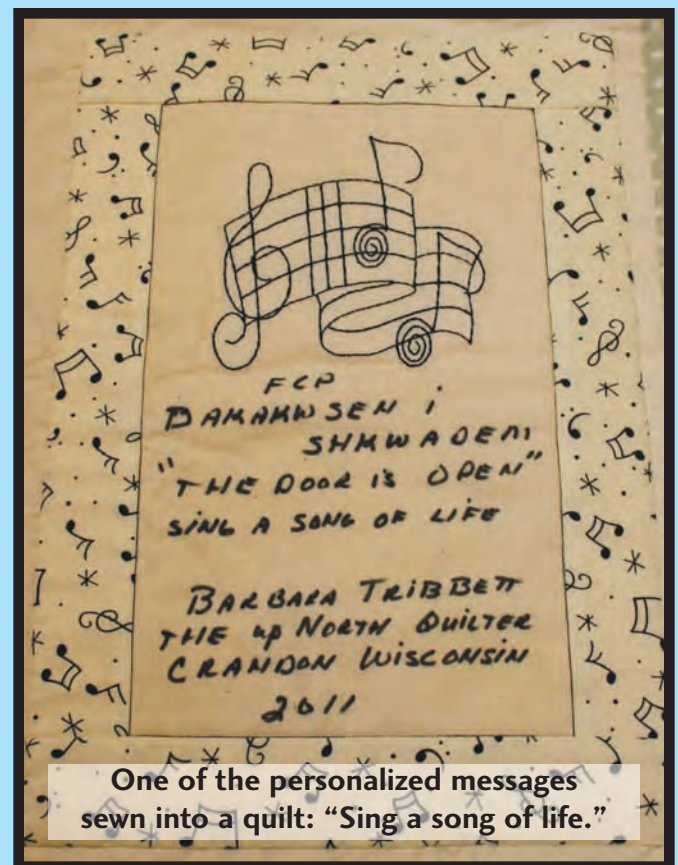 FCP
BAKAKWSEN i
SHKWADEM
"THE DOOR iS OPEN"
SiNG A SONG OF LiFE
BARBARA TRiBBETT
THE up NORTH QUiLTER
CRANDON WiSCONSiN
2011
One of the personalized messages
sewn into a quilt: “Sing a song of life.”